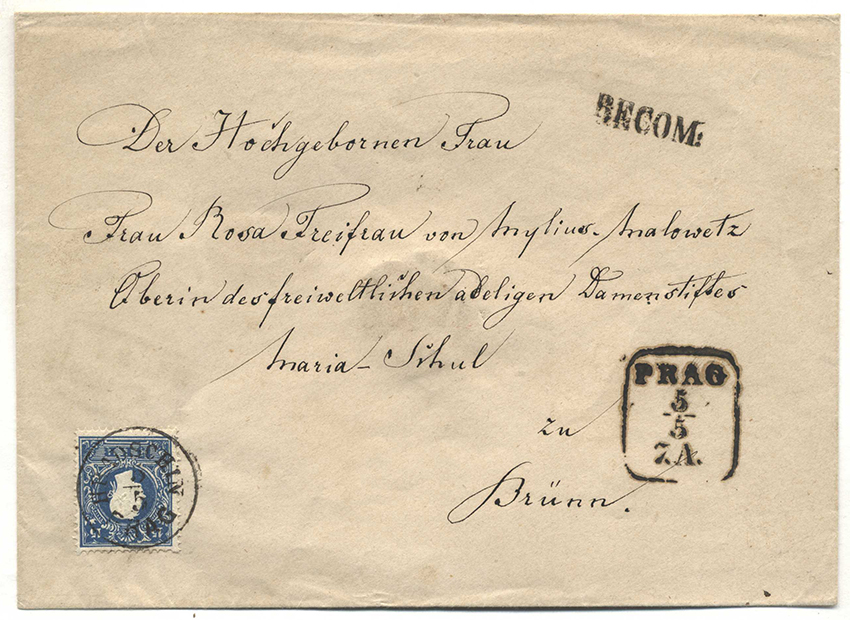 RECOM:
Der Hochgebornen Frau
Frau Rosa Freifrau von Mylius-Malowetz
Oberin des freiweltlichen adeligen Damenstiftes
Maria-Schul
zu
Brünn.
PRAG
5
5
7.A.
HRADSCHIN
5
PRAG